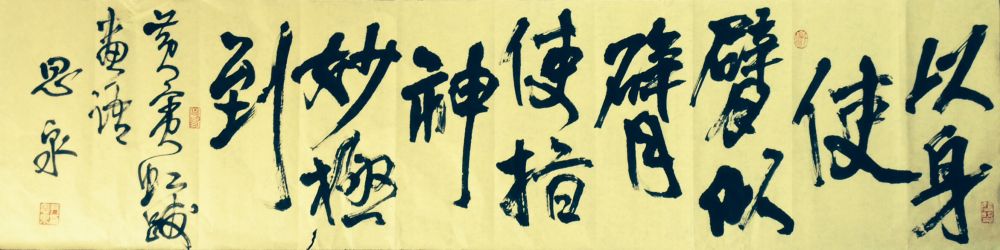 以身
使
臂以
臂
使指
神
妙極
到
黄賓虹跋
畫語
思泉